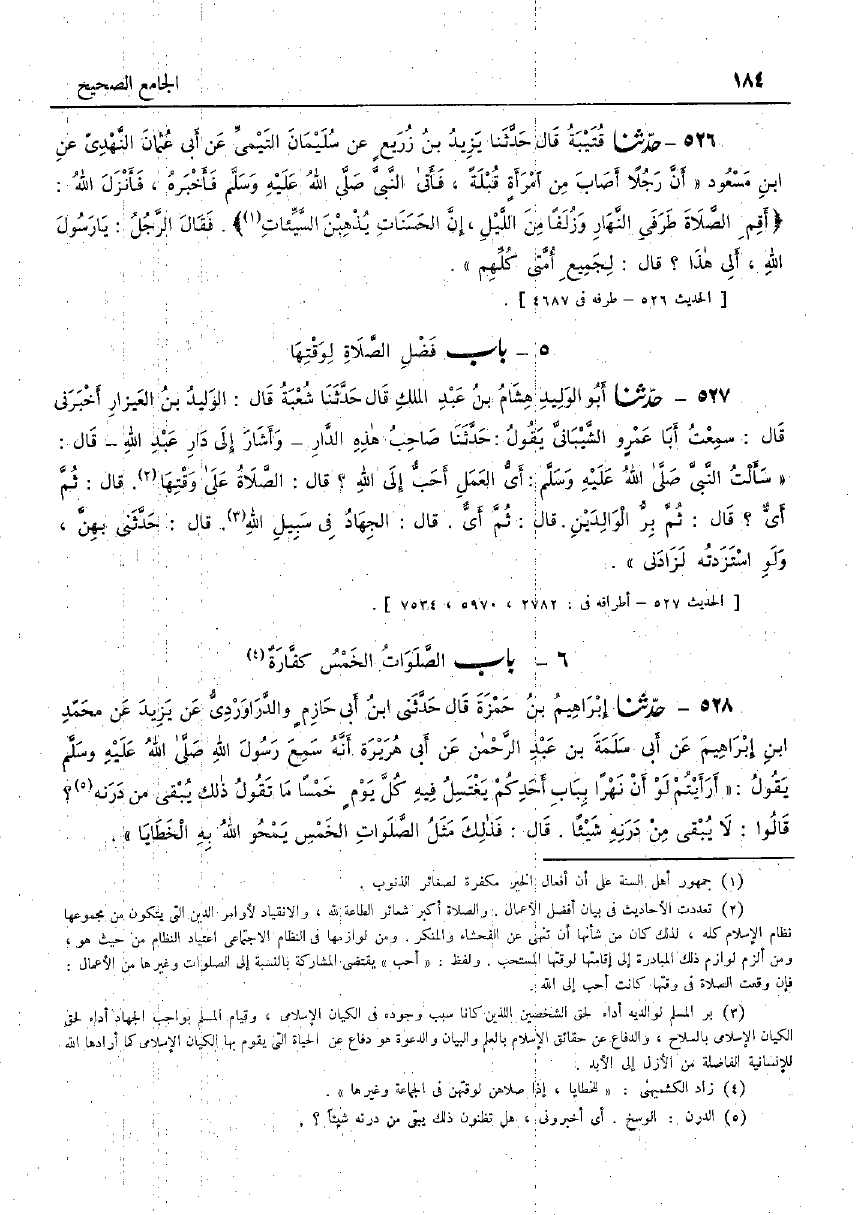 ١٨٤
الجامع الصحيح
٥٢٦ - حدّثنا قُتَيْبَةُ قَالَ حَدَّثَنا يَزِيدُ بنُ زُرَيعٍ عن سُلَيْمَانَ التَّيْمِىِّ عَن أبى عُثْمَانَ النَّهْدِىِّ عنِ
ابنِ مَسْعُود « أَنَّ رَجُلًا أَصَابَ مِن امْرَأَةٍ قُبْلَةً ، فَأَتَى النبيَّ صَلَّى اللهُ عَلَيْهِ وَسَلَّم فَأَخْبَرهُ ، فَأَنْزَلَ اللهُ :
﴿ أَقِمِ الصَّلَاةَ طَرَفَي النَّهَارِ وَزُلَفًا مِنَ اللَّيْلِ ، إِنَّ الحَسَنَاتِ يُذْهِبْنَ السَّيِّئَاتِ(١)﴾ . فَقَالَ الرَّجُلُ : يَارَسُولَ
اللهِ ، أَلِى هٰذَا ؟ قال : لِجَمِيعِ أُمَّتى كُلِّهِم » .
[ الحديث ٥٢٦ – طرفه فى ٤٦٨٧ ] .
٥ - باب فَضْلِ الصَّلَاةِ لِوَقْتِهَا
٥٢٧ - حدّثنا أَبُو الوَلِيدِ هِشَامُ بنُ عَبْدِ الملكِ قال حَدَّثَنَا شُعْبَةُ قَال : الوَلِيدُ بنُ العَيزارِ أَخْبَرَنى
قَال : سمِعْتُ أَبَا عَمْرٍو الشَّيْبَانىَّ يَقُولُ : حَدَّثَنَا صَاحِبُ هٰذِهِ الدَّارِ – وَأَشَارَ إِلَى دَارِ عَبْدِ اللهِ – قَال :
« سَأَلْتُ النَّبيَّ صَلَّى اللهُ عَلَيْهِ وَسَلَّم : أَىُّ العَمَلِ أَحَبُّ إِلَى اللهِ ؟ قال : الصَّلَاةُ عَلَى وَقْتِهَا(٢). قال : ثُمَّ
أَىُّ ؟ قَالَ : ثُمَّ بِرُّ الْوَالِدَيْنِ . قال : ثُمَّ أَىُّ . قال : الجِهَادُ فى سَبِيلِ اللهِ(٣). قال : حَدَّثَنى بِهِنَّ ،
وَلَوِ اسْتَزَدتُه لَزَادَنى » .
[ الحديث ٥٢٧ – أطرافه فى : ٢٧٨٢ ، ٥٩٧٠ ، ٧٥٣٤ ] .
٦ - باب الصَّلَوَاتُ الخَمْسُ كفَّارَةٌ(٤)
٥٢٨ - حدّثنا إِبْرَاهِيمُ بنُ حَمْزَةَ قَال حَدَّثَنى ابنُ أَبى حَازِمٍ والدَّرَاوَرْدِىُّ عَن يَزِيدَ عَن محمَّدِ
ابنِ إِبْرَاهِيمَ عَن أَبى سَلَمَةَ بن عَبْدِ الرَّحْمٰن عَن أَبى هُرَيْرَةَ أَنَّهُ سَمِعَ رَسُولَ اللهِ صَلَّى اللهُ عَلَيْهِ وسَلَّم
يَقُولُ : « أَرَأَيْتُمْ لَوْ أَنَّ نَهْرًا بِبَابِ أَحَدِكُمْ يَغْتَسِلُ فِيهِ كُلَّ يَوْمٍ خَمْسًا مَا تَقُولُ ذٰلكَ يُبْقى من دَرَنه(٥)؟
قَالُوا : لَا يُبْقى مِنْ دَرَنِهِ شَيْئًا . قال : فَذٰلِكَ مَثَلُ الصَّلَواتِ الخَمْسِ يَمْحُو اللهُ بِهِ الْخَطَايَا » .
(١) جمهور أهل السنة على أن أفعال الخير مكفرة لصغائر الذنوب .
(٢) تعددت الأحاديث فى بيان أفضل الأعمال . والصلاة أكبر شعائر الطاعة لله ، والانقياد لأوامر الدين التى يتكون من مجموعها
نظام الإسلام كله ، لذلك كان من شأنها أن تنهى عن الفحشاء والمنكر . ومن لوازمها فى النظام الاجتماعى اعتياد النظام من حيث هو ،
ومن ألزم لوازم ذلك المبادرة إلى إقامتها لوقتها المستحب . ولفظ : « أحب » يقتضى المشاركة بالنسبة إلى الصلوات وغيرها من الأعمال :
فإن وقعت الصلاة فى وقتها كانت أحب إلى الله .
(٣) بر المسلم لوالديه أداء لحق الشخصين اللذين كانا سبب وجوده فى الكيان الإسلامى ، وقيام المسلم بواجب الجهاد أداء لحق
الكيان الإسلامى بالسلاح ، والدفاع عن حقائق الإسلام بالعلم والبيان والدعوة هو دفاع عن الحياة التى يقوم بها الكيان الإسلامى كما أرادها الله
للإنسانية الفاضلة من الأزل إلى الأبد .
(٤) زاد الكشميهنى : « للخطايا ، إذا صلاهن لوقتهن فى الجماعة وغيرها » .
(٥) الدرن : الوسخ . أى أخبرونى ، هل تظنون ذلك يبقى من درنه شيئاً ؟ .